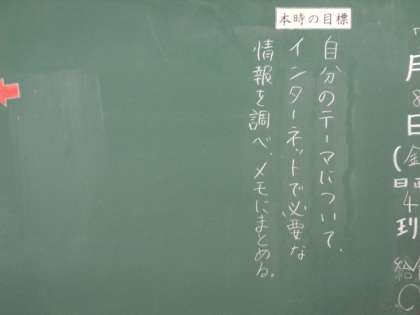 月
8
日
(金
日直
4
班
給
本時の目標
自分のテーマについて、
インターネットで必要な
情報を調べ、メモにまとめる。